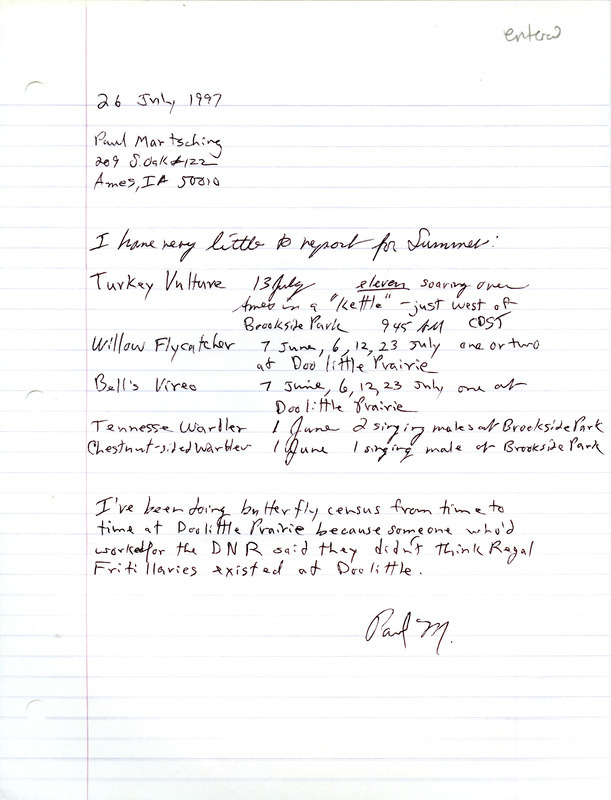 entered
26 July 1997
Paul Martsching
209 S. Oak #122
Ames, IA 50010
I have very little to report for Summer:
Turkey Vulture 13 July eleven soaring over
Ames in a "kettle" - just west of
Brookside Park 945 AM CDST
Willow Flycatcher 7 June, 6, 12, 23 July one or two
at Doolittle Prairie
Bell's Vireo 7 June, 6, 12, 23 July one at
Doolittle Prairie
Tennesse Warbler 1 June 2 singing males at Brookside Park
Chestnut-sided Warbler 1 June 1 singing male at Brookside Park
I've been doing butterfly census from time to
time at Doolittle Prairie because someone who'd
worked for the DNR said they didn't think Regal
Fritillaries existed at Doolittle.
Paul M.